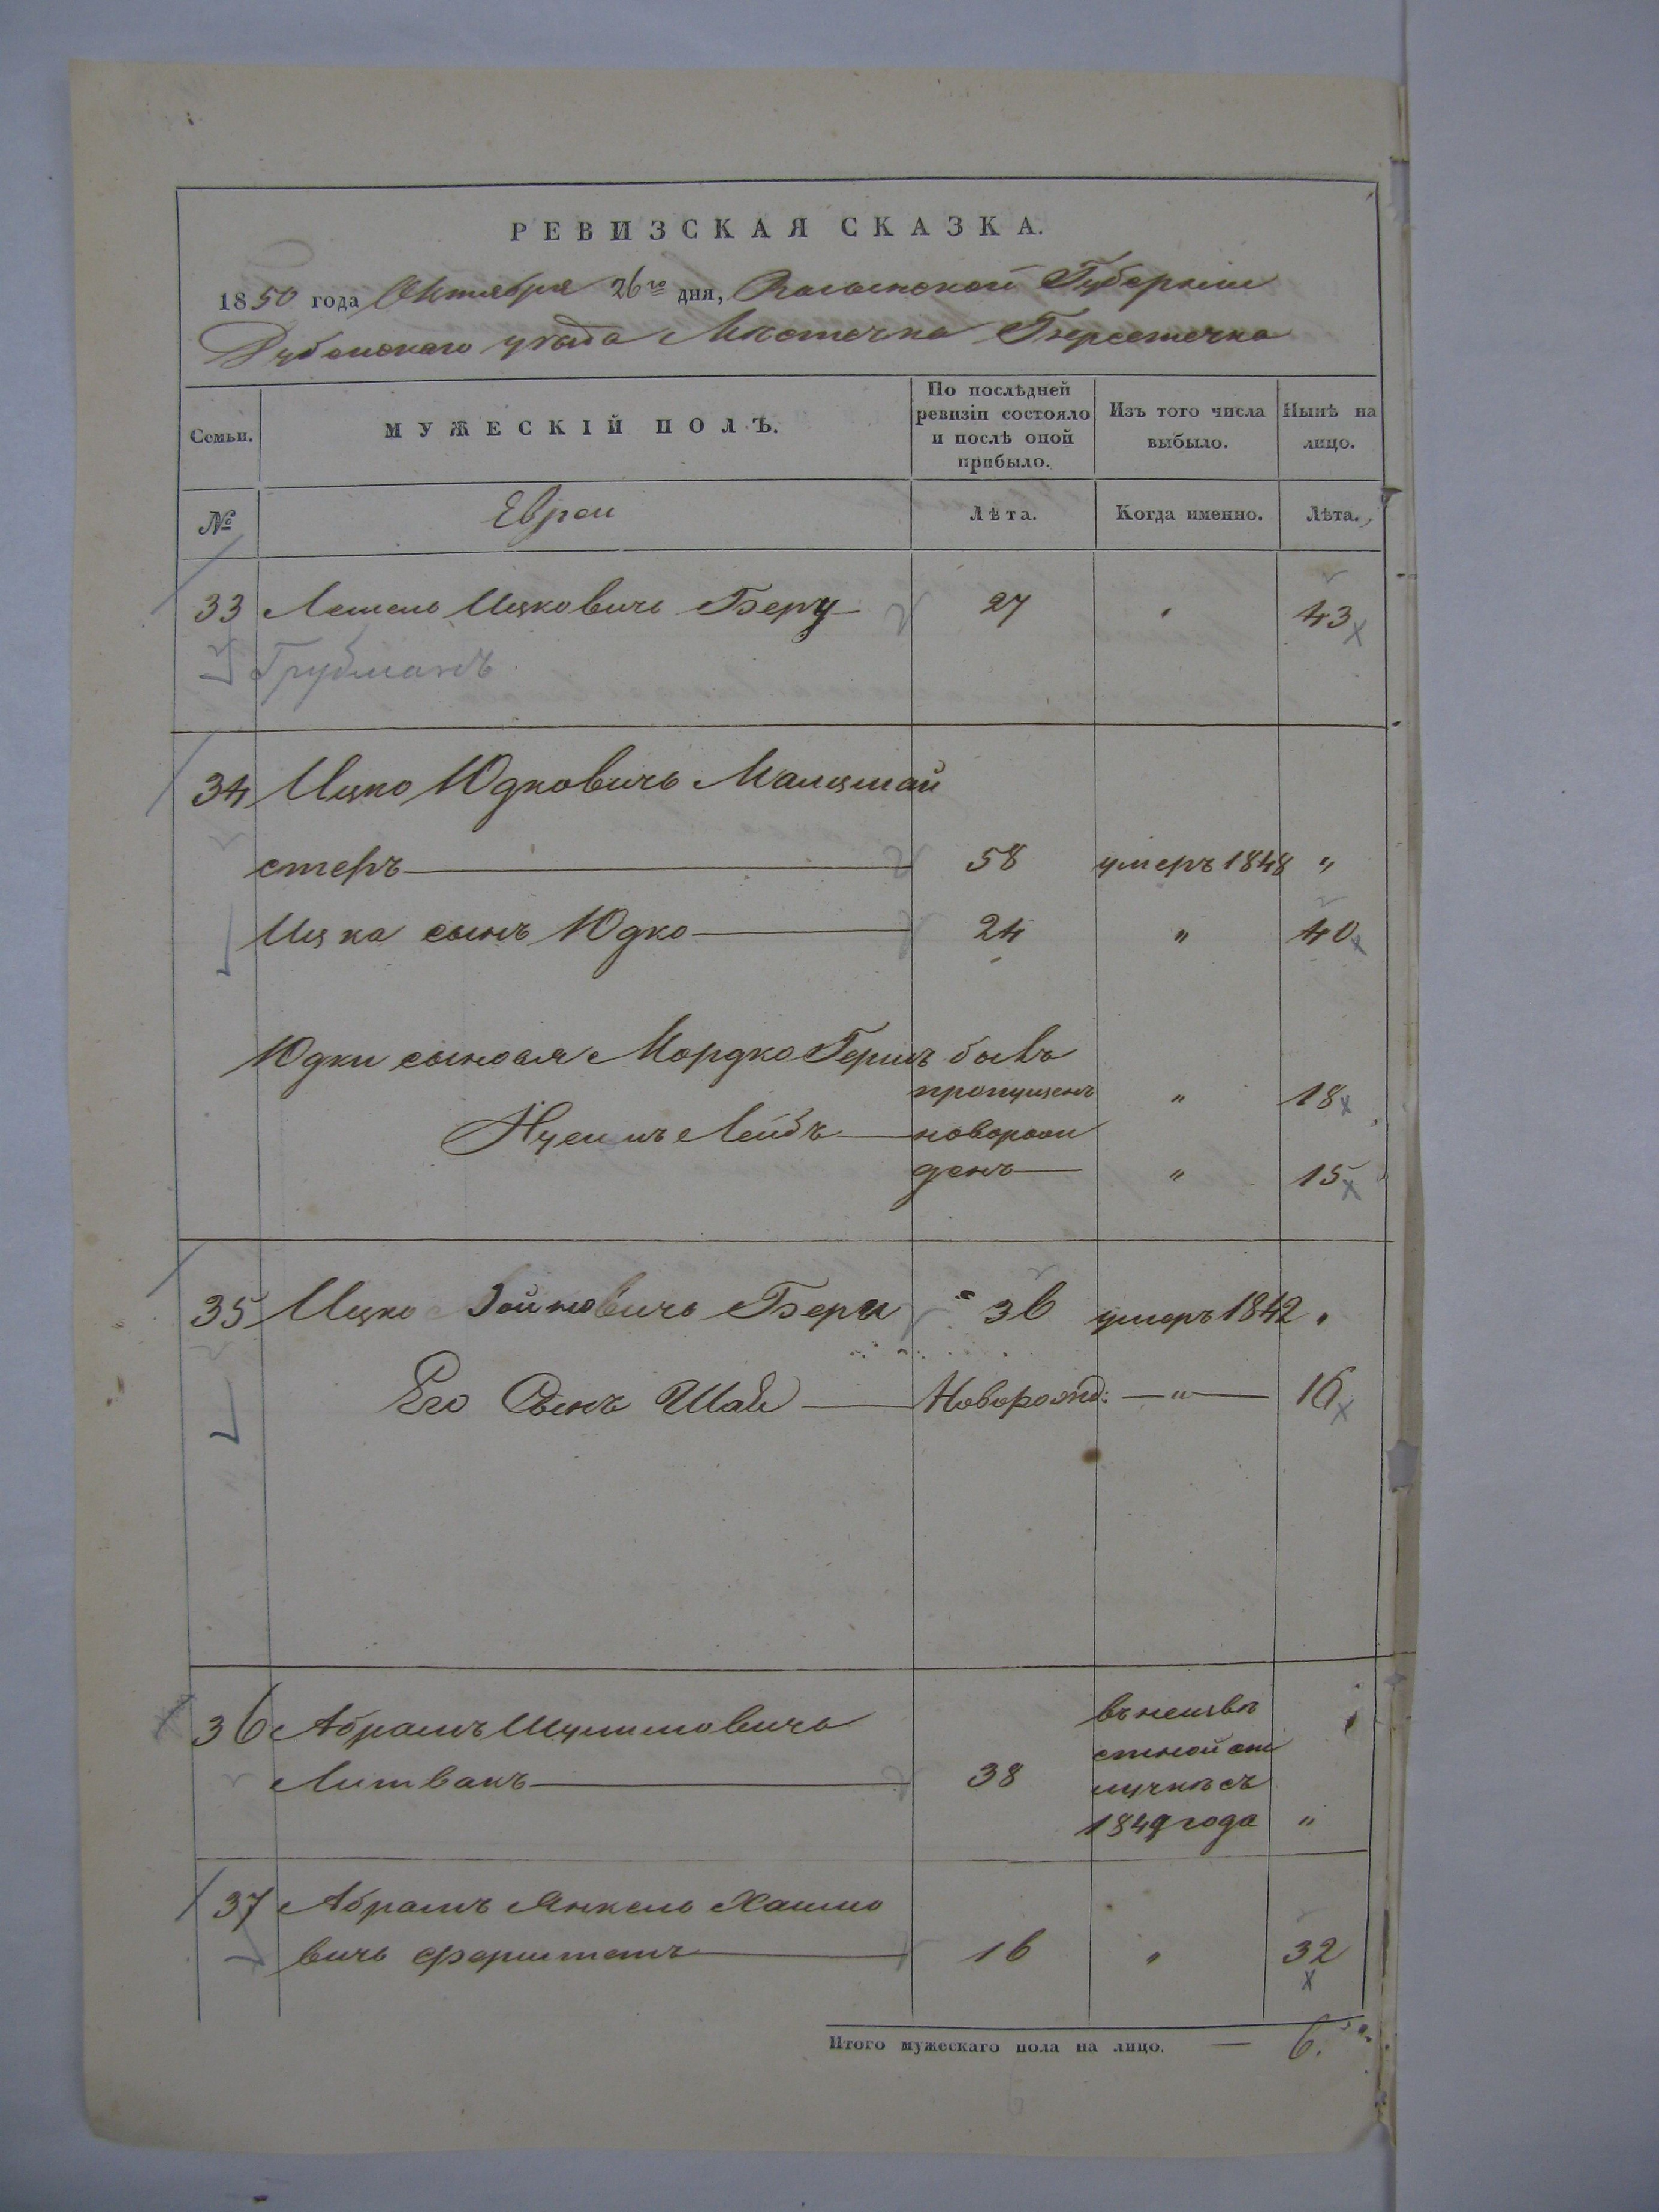 РЕВИЗСКАЯ СКАЗКА.
1850 года Октября 26го дня, Волынской Губерніи
Дубенскаго уѣзда Мѣстечка Берестечка
Семьи. МУЖЕСКІЙ ПОЛЪ. По послѣдней ревизіи состояло и послѣ оной прибыло. Изъ того числа выбыло. Нынѣ на лицо.
№ Евреи Лѣта. Когда именно. Лѣта.
33 Ицковичь Беру 27 " 43
Грубманъ.
34 Ицко Юдковичь Малцмай
стеръ 58 умеръ 1848 "
Ицка сынъ Юдко 24 " 40
Юдки сыновья Мордко Гершъ бывъ
пропущенъ " 18
Нусимъ Лейбъ новорож
денъ " 15
35 Ицко Бери 36 умеръ 1842 "
Его Сынъ Шае Новорожд: — " — 16
36 Абрамъ
Литвакъ 38 въ неизвѣ
стной от
лучкѣ съ
1849 года "
37 Абрамъ Янкель Хаимо
вичь 16 " 32
Итого мужескаго пола на лицо. — 6.